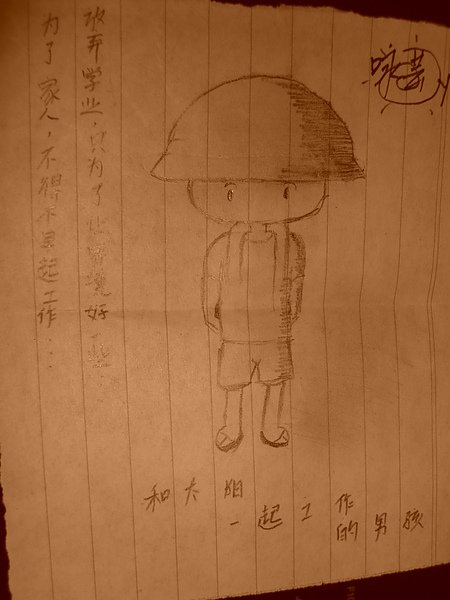 放弃学业，只为了让家境好一些
为了家人，不得不早起工作…
和大姐
一起工作
的男孩